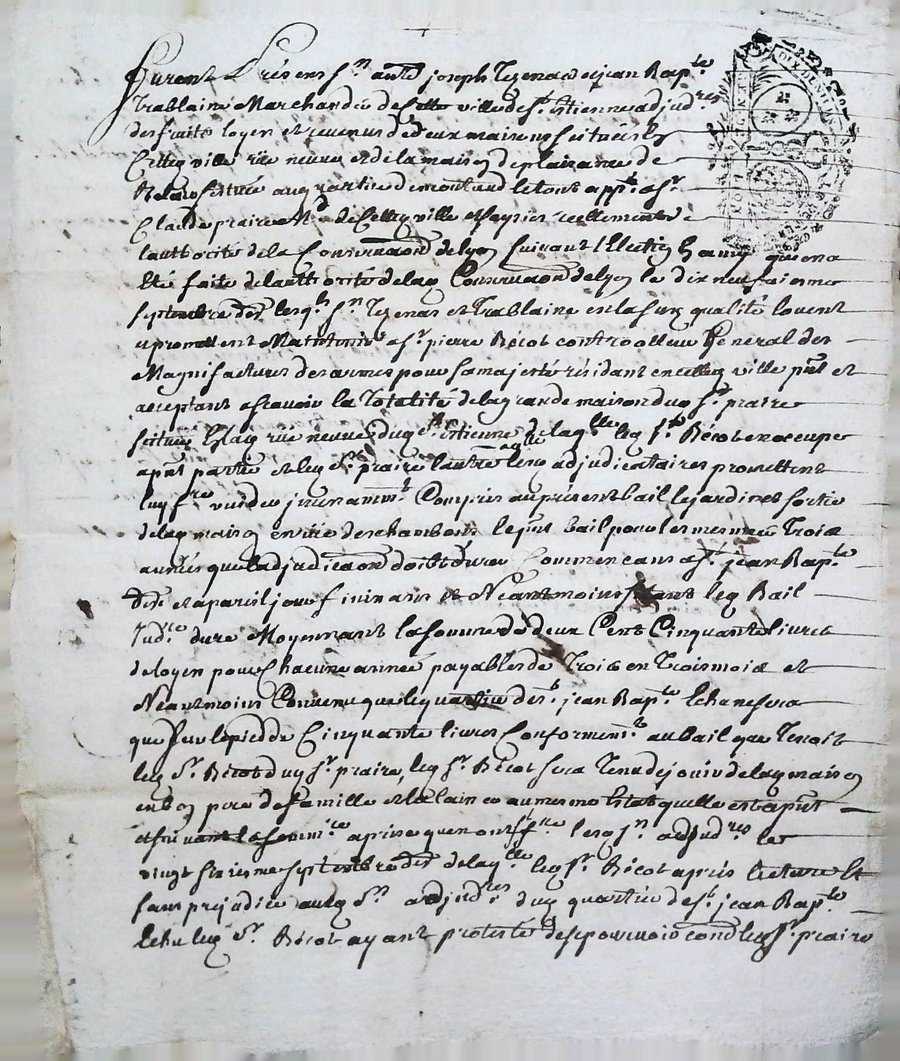 furent Présens sʳˢ anthᵉ joseph Tezenas et jean Bapᵗᵉ
Trablaine Marchands de cette ville de sᵗ Etienne adjudʳᵉˢ
des fruits loyers et revenus de deux maisons scituées
Cetteᵈ ville rüe neuve et de la maison de plaisance de
scituée au quartier de montaud le tout appᵗ a sʳ
Claude praire Mᵈ de Cetteᵈ ville et saysies reellement de
lauthorité de la Conservaaon de lyon suivant l'Election
Eté faite de lauthorité de laᵈ Conservaaon de lyon le dix neufviesme
septembre dʳ lesqˡˢ sʳˢ Tezenas et Trablaine en laᵈ qualité louent
et promettent Maintenir a sʳ pierre Bécot controolleur General des
Magnifactures des armes pour sa majesté résidant en cetteᵈ ville pnt et
acceptant a scavoir la Totalité de la grande maison duᵈ sʳ praire
scituée rüe neuve duᵈ sᵗ Etienne de laqˡˡᵉ leᵈ sʳ Bécot en occupe
apnt partie et leᵈ sʳ praire lautre laqˡˡᵉ adjudicataires promettent
luy fʳᵉ vuider jncessammᵗ Compris au présent bail le jardin et sortie
de laᵈ maison le pnt bail pour le mesme Trois
années que ladjudicaaon doibt durer Commencans a sᵗ jean Bapᵗᵉ
dʳ et a pareil jour finissans et Néantmoins leᵈ Bail
Judʳᵉ dure Moyennant la somme de deux Cent Cinquante livres
de loyer pour chacune année payables de Trois en Trois mois et
Néantmoins Convenu que le quartier de sᵗ jean Bapᵗᵉ Echu ne sera
que sur le pied de Cinquante livres Conformemᵗ au bail que Tenoit
leᵈ sʳ Bécot duᵈ sʳ praire, leᵈ sʳ Bécot sera Tenu de jouir de laᵈ maison
en bon pere de famille et la laisser au mesme Estat quelle est apnt
et suivant a prise quen ont fʳᵉ lesᵈ sʳˢ adjudʳᵉˢ le
vingt sixiesme septembre dʳ de laqˡˡᵉ leᵈ sʳ Bécot apris lecture et
sans prejudice ausᵈ sʳˢ adjudʳᵉˢ duᵈ quartier de sᵗ jean Bapᵗᵉ
Echu leᵈ sʳ Bécot ayant protesté de se pourvoir cond leᵈ sʳ praire